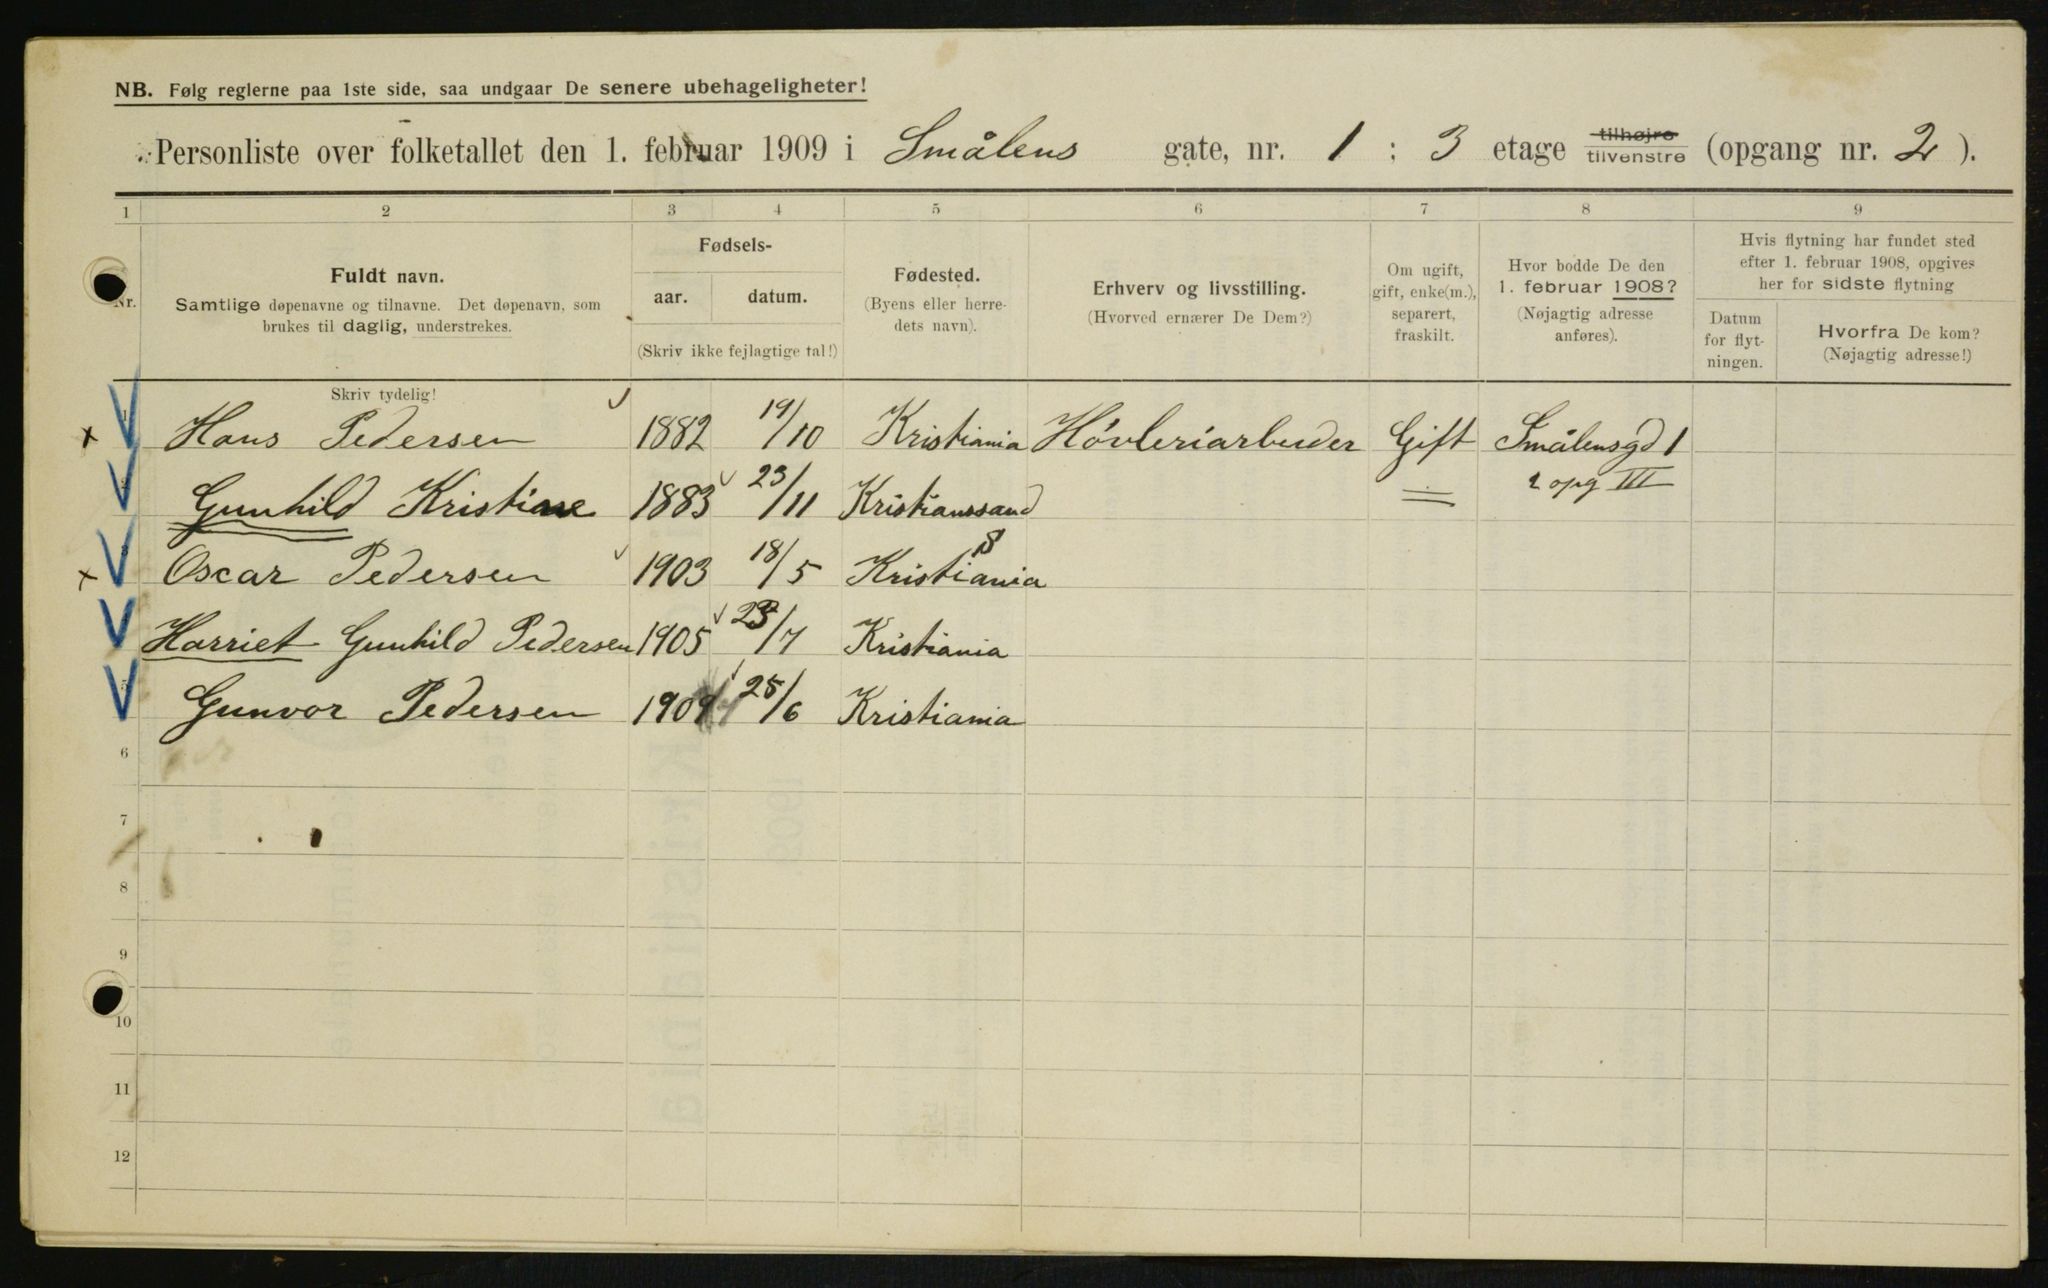 NB. Følg reglerne paa 1ste side, saa undgaar De senere ubehageligheter!
Personliste over folketallet den 1. februar 1909 i Smålens gate, nr. 1 : 3 etage tilhøjre tilvenstre (opgang nr. 2 ).
1 2 3 4 5 6 7 8 9
Nr.
Fuldt navn.
Samtlige døpenavne og tilnavne. Det døpenavn, som
brukes til daglig, understrekes.
Fødsels-
aar. datum.
(Skriv ikke fejlagtige tal!)
Fødested.
(Byens eller herre-
dets navn).
Erhverv og livsstilling.
(Hvorved ernærer De Dem?)
Om ugift,
gift, enke(m.),
separert,
fraskilt.
Hvor bodde De den
1. februar 1908?
(Nøjagtig adresse
anføres).
Hvis flytning har fundet sted
efter 1. februar 1908, opgives
her for sidste flytning
Datum
for flyt-
ningen.
Hvorfra De kom?
(Nøjagtig adresse!)
Skriv tydelig!
1 Hans Pedersen 1882 19/10 Kristiania Høvleriarbeider Gift Smålensgd 1
2 opg III
2 Gunhild Kristiane 1883 23/11 Kristianssand =
3 Oscar Pedersen 1903 18/5 Kristiania
Harriet Gunhild Pedersen 1905 23/7 Kristiania
5 Gunvor Pedersen 1907 25/6 Kristiania
6
7
8
9
10
11
12